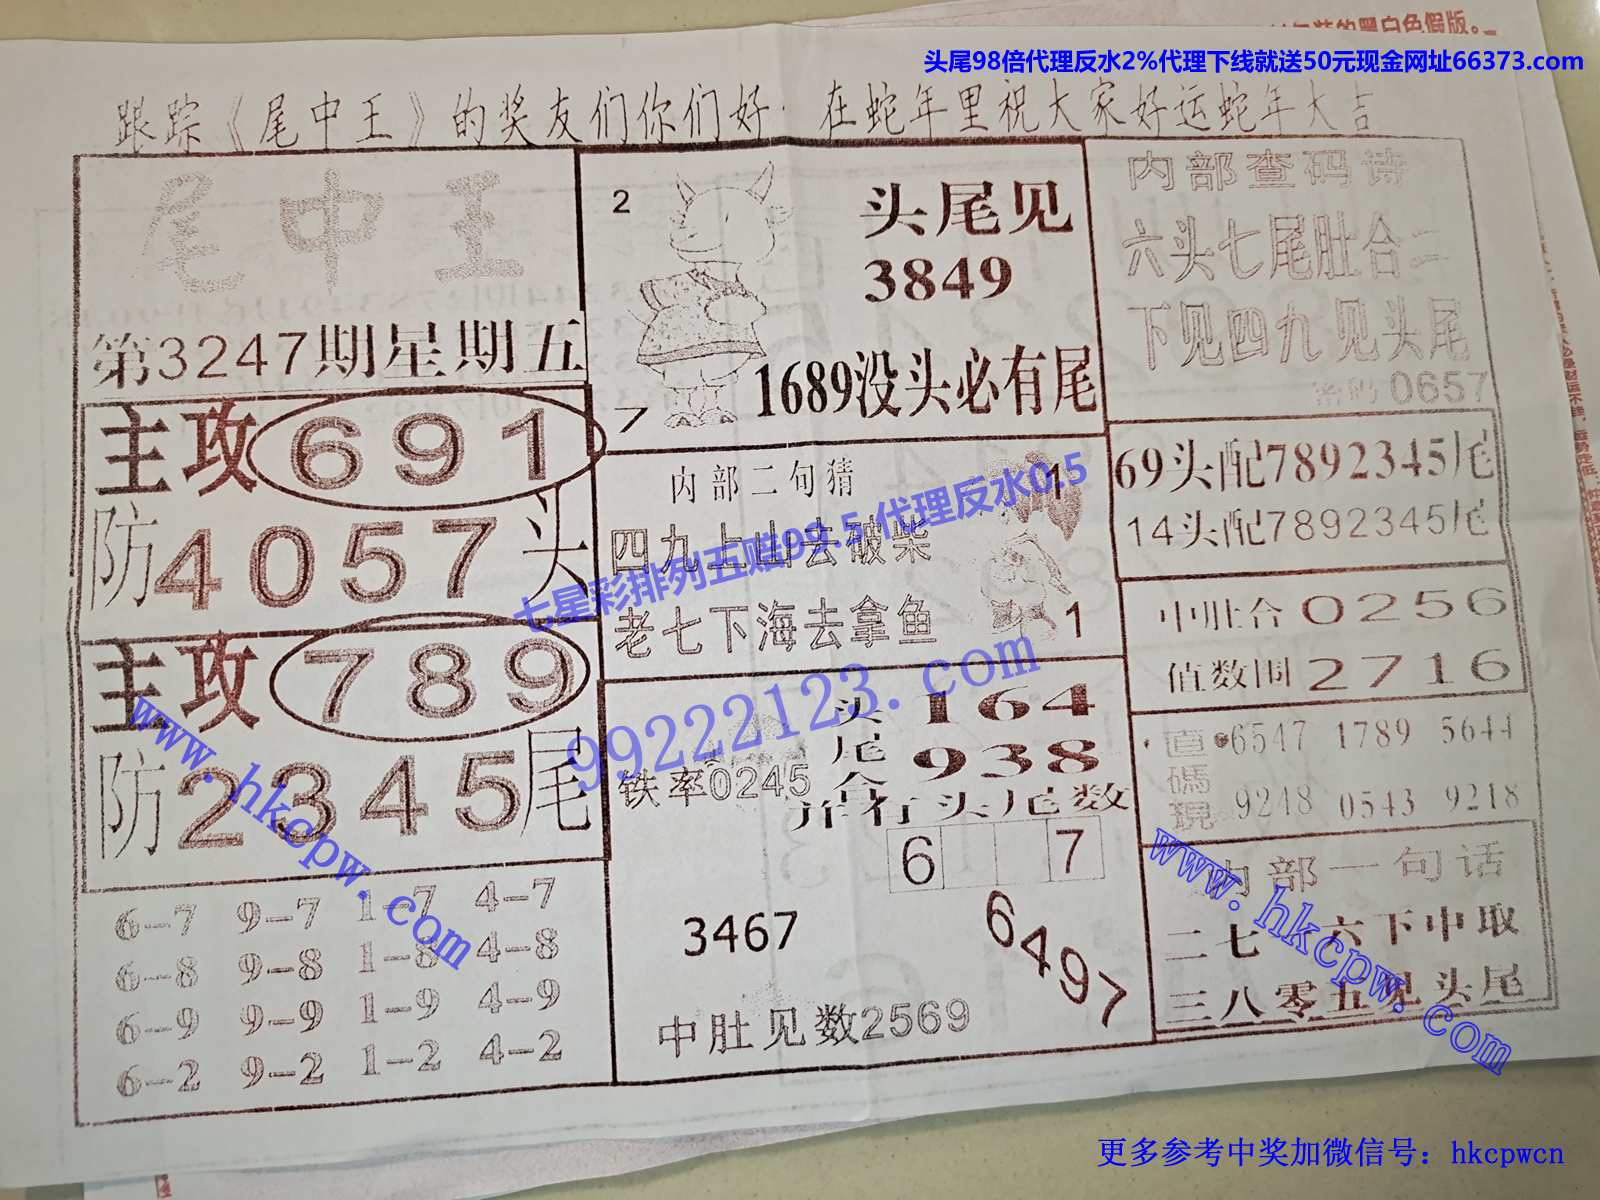 头尾98倍代理反水2%代理下线就送50元现金网址66373.com
跟踪《尾中王》的奖友们你们好 在蛇年里祝大家好运蛇年大吉
尾中王
第3247期星期五
主攻691
防4057头
主攻789
防2345尾
6-7 9-7 1-7 4-7
6-8 9-8 1-8 4-8
6-9 9-9 1-9 4-9
6-2 9-2 1-2 4-2
2
头尾见
3849
1689没头必有尾
7
内部二句猜
四九上山去破柴
老七下海去拿鱼
1
1
七星彩排列五赔99.5 代理反水0.5
99222123.com
头164
尾938
合
铁率0245
并行头尾数
6 7
3467
6497
中肚见数2569
内部查码诗
六头七尾肚合二
下见四九见头尾
密码0657
69头配7892345尾
14头配7892345尾
中肚合0256
值数围2716
直碼現
6547 1789 5644
9248 0543 9218
内部一句话
二七 六下中取
三八零五见头尾
www.hkcpw.com
www.hkcpw.com
更多参考中奖加微信号：hkcpwcn